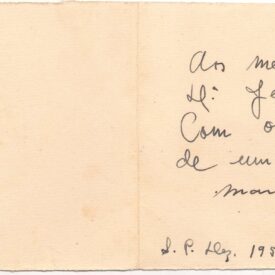 Aos me
D. Je
Com o
de um
mar
S. P. Dez. 195